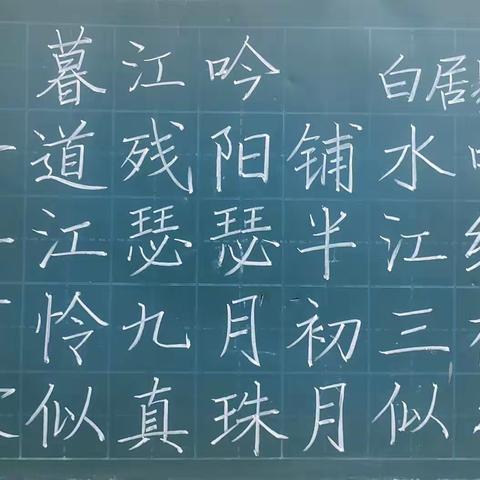 暮江吟 白居
道残阳铺水
江瑟瑟半江
怜九月初三
似真珠月似